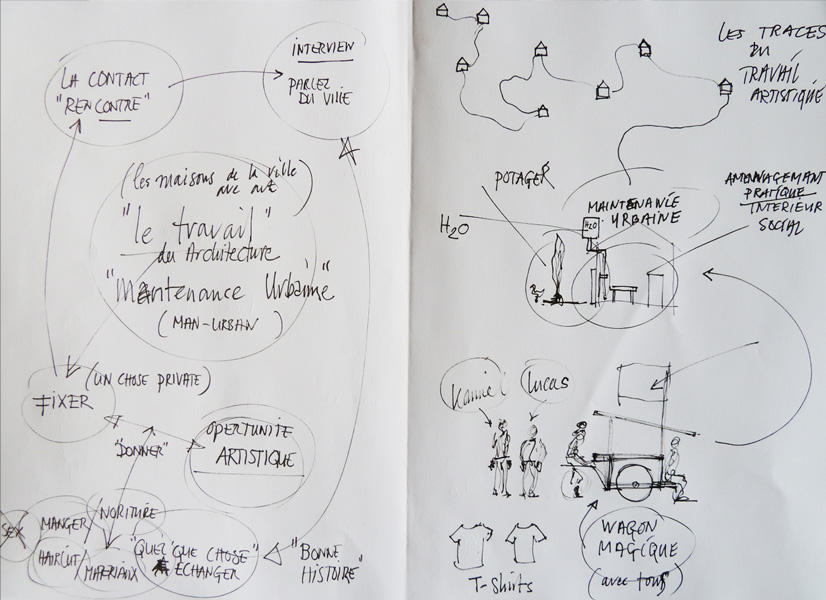 LA CONTACT
"RENCONTRE"
INTERVIEW
PARLEZ
DU VILLE
(les maisons de la ville
avec art)
"le travail"
du Architecture
"Maintenance Urbaine"
(MAN-URBAN)
(UN CHOSE PRIVATE)
FIXER
"DONNER"
OPERTUNITE
ARTISTIQUE
SEX
MANGER/
NORITURE
HAIRCUT/
MATERIAUX
"QUEL'QUE CHOSE"
ECHANGER
"BONNE
HISTOIRE"
LES TRACES
DU
TRAVAIL
ARTISTIQUE
POTAGER
H2O
MAINTENANCE
URBAINE
H2O
AMENNAGEMENT
PRATIQUE
INTERIEUR
SOCIAL
Lucas
T-Shirts
WAGON
MAGIQUE
(avec tous)